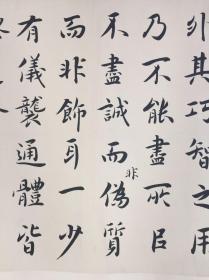 外其巧智之用
乃不能盡所以
不盡誠而偽質
非
而非飾耳一少
有儀襲通體皆